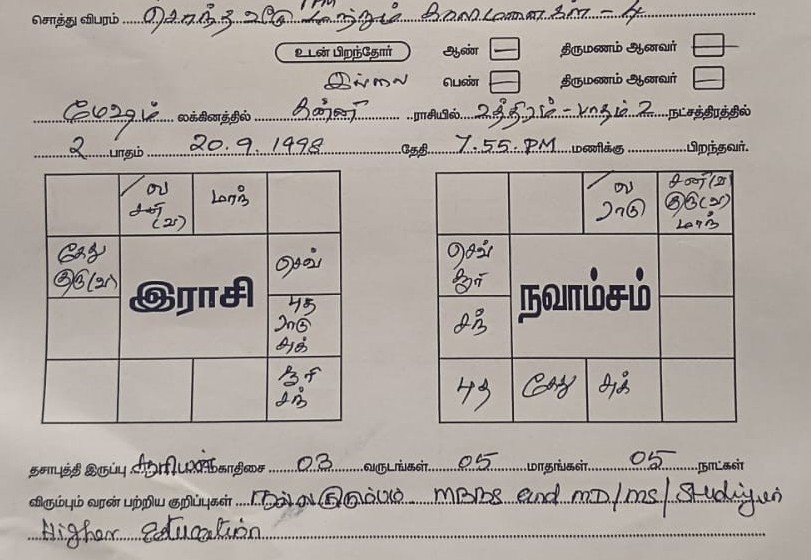 PM
சொத்து விபரம் சொந்த வீடு மற்றும் காலமனைகள் - 4
உடன் பிறந்தோர் ஆண் — திருமணம் ஆனவர் —
இல்லை பெண் — திருமணம் ஆனவர் —
மேஷம் லக்கினத்தில் கன்னி ராசியில் உத்திரம் - பாதம் 2 நட்சத்திரத்தில்
2 பாதம் 20.9.1998 தேதி 7.55.PM மணிக்கு பிறந்தவர்.
ல சனி (வ) மாந்
கேது குரு(வ) செவ்
இராசி
புத ராகு சுக்
சூரி சந்
ல ராகு சனி(வ) குரு(வ) மாந்
செவ் சூரி
நவாம்சம்
சந்
புத கேது சுக்
தசாபுத்தி இருப்பு சூரியன் மகாதிசை 03 வருடங்கள் 05 மாதங்கள் 05 நாட்கள்
விரும்பும் வரன் பற்றிய குறிப்புகள் நல்ல குடும்பம் MBBS and MD/MS/Studying
Higher Education